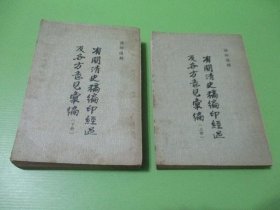 有關清史稿編印經過
及各方意見彙編(下冊)
有關清史稿編印經過
及各方意見彙編(上冊)